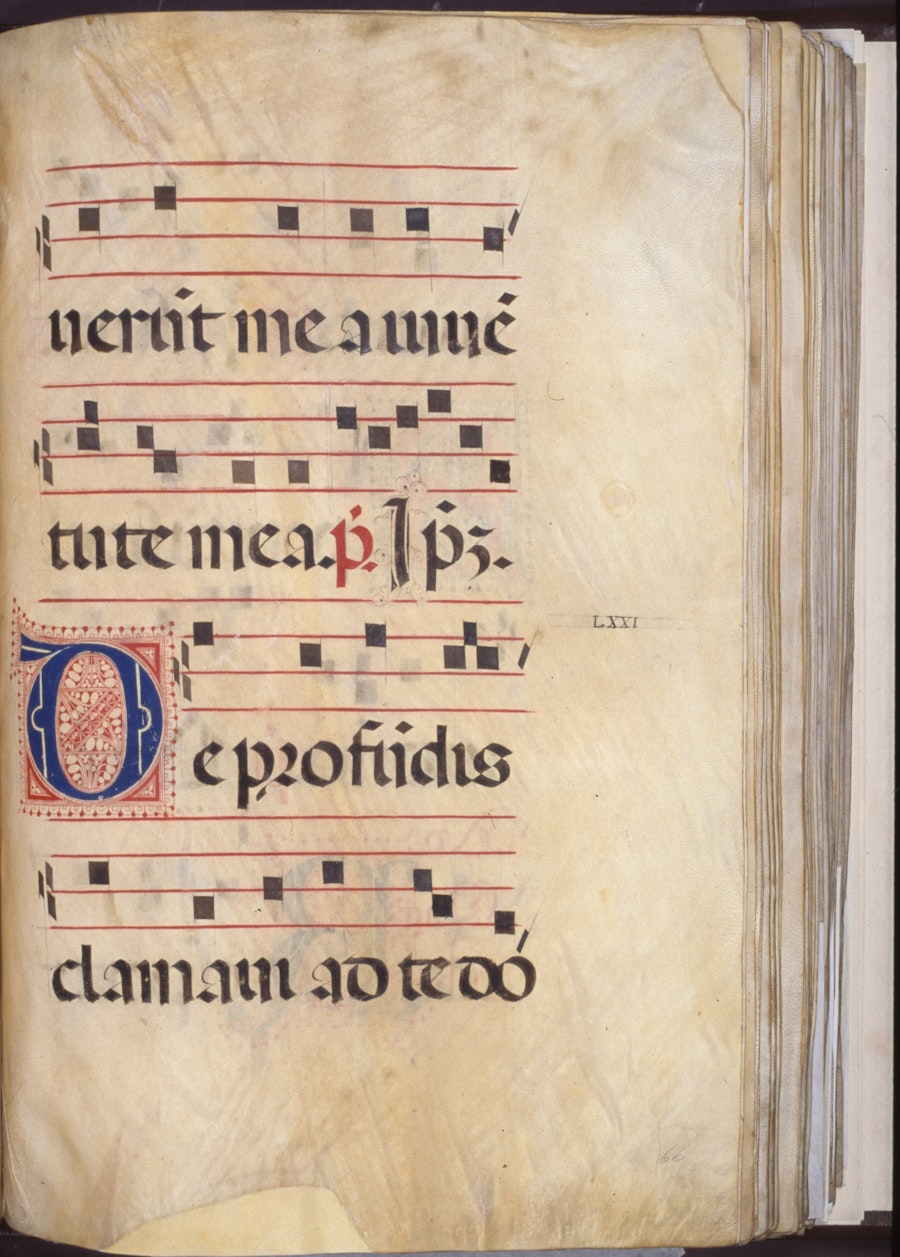 uertĩt me a iuuẽ
tute mea. p̃. I p̃ʒ.
LXXI
De profũdis
clamaui ad te dõ